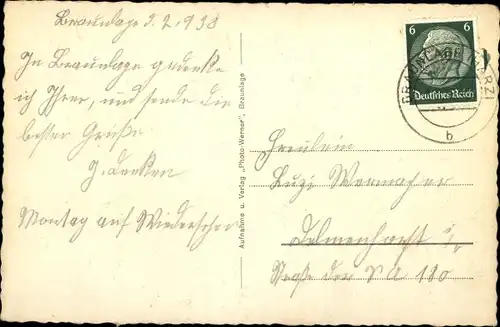 Braunlage 3.2.1938
In Braunlage gedenke
ich Ihrer, und sende die
besten Grüße
J. Denken
Montag auf Wiedersehen
Aufnahme u. Verlag „Photo-Werner“, Braunlage
6
Deutsches Reich
BRAUNLAGE
b
Fräulein
Luzi Wermacher
Delmenhorst i/
Straße der SA 180